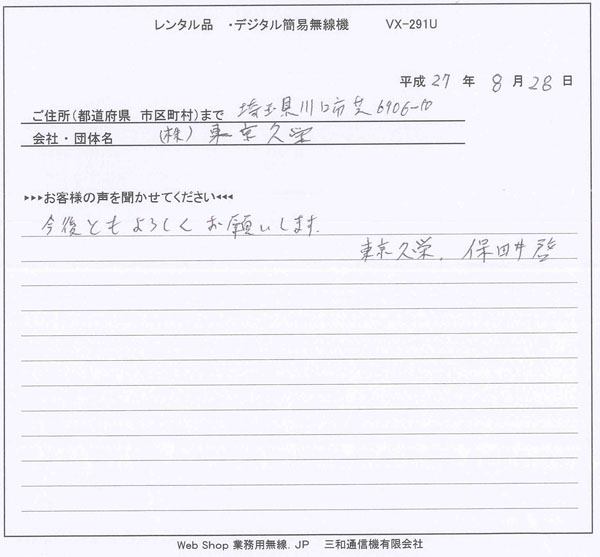 レンタル品 ・デジタル簡易無線機 VX-291U
平成 27 年 8 月 28 日
ご住所(都道府県 市区町村)まで 埼玉県川口市芝6906-10
会社・団体名 (株) 東京久栄
▸▸▸お客様の声を聞かせてください◂◂◂
今後ともよろしくお願いします。
東京久栄. 保田井 啓
Web Shop 業務用無線. JP 三和通信機有限会社